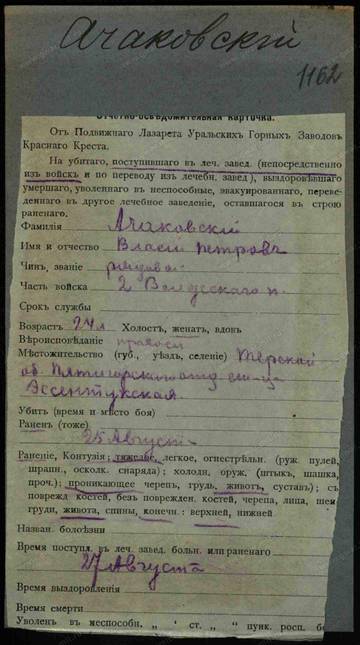 Ачаковскій
1162
Отчетно-осведомительная карточка.
Отъ Подвижнаго Лазарета Уральскихъ Горныхъ Заводовъ
Краснаго Креста.
На убитаго, поступившаго въ леч. завед. (непосредственно
изъ войскъ и по переводу изъ лечебн. завед.), выздоровѣвшаго
умершаго, уволеннаго въ неспособные, эвакуированнаго, переве-
деннаго въ другое лечебное заведеніе, оставшагося въ строю
раненаго.
Фамилія Ачаковскій
Имя и отчество Власій Петровъ
Чинъ, званіе рядовой
Часть войска 2 п.
Срокъ службы
Возрастъ 24 л. Холостъ, женатъ, вдовъ
Вѣроисповѣданіе правосл
Мѣстожительство (губ., уѣздъ, селеніе) Терской
об. Пятигорскаго отд ст-ца
Эссентукская
Убитъ (время и мѣсто боя)
Раненъ (тоже)
25 Августа
Раненіе, Контузія; тяжелое, легкое, огнестрѣльн. (руж. пулей,
шрапн., осколк. снаряда); холодн. оруж. (штыкъ, шашка,
проч.); проникающее черепъ, грудь, животъ, суставъ); съ
поврежд костей, безъ поврежден. костей, черепа, лица, шеи
груди, живота, спины, конечн.: верхней, нижней
Назван. болѣзни
Время поступл. въ леч. завед. больн. или раненаго
27 Августа
Время выздоровленія
Время смерти
Уволенъ въ неспособн. „ ст. „ „ пунк. росп. бо